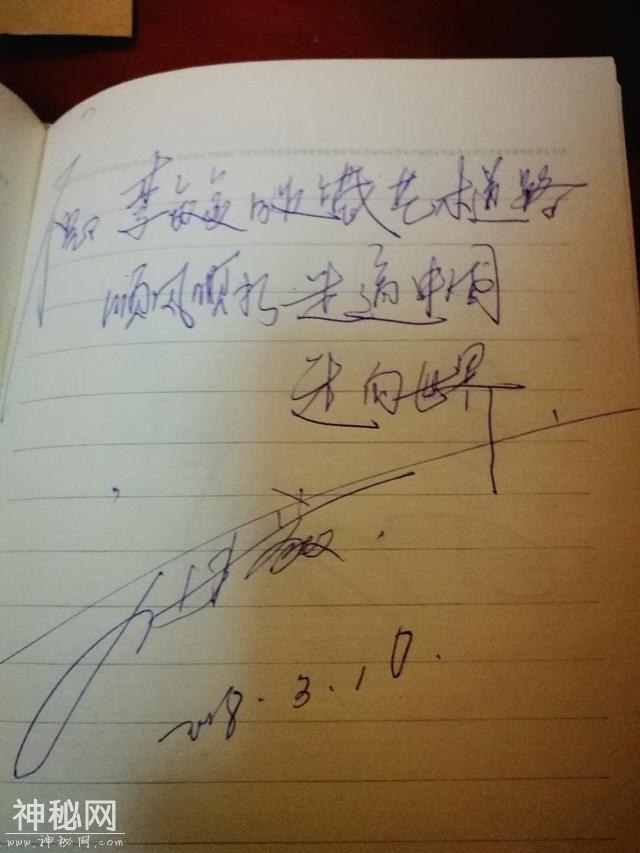 李 收藏艺术道路
顺风顺 走遍中国
走向世界
2018.3.10.
神秘网
www.神秘网.com